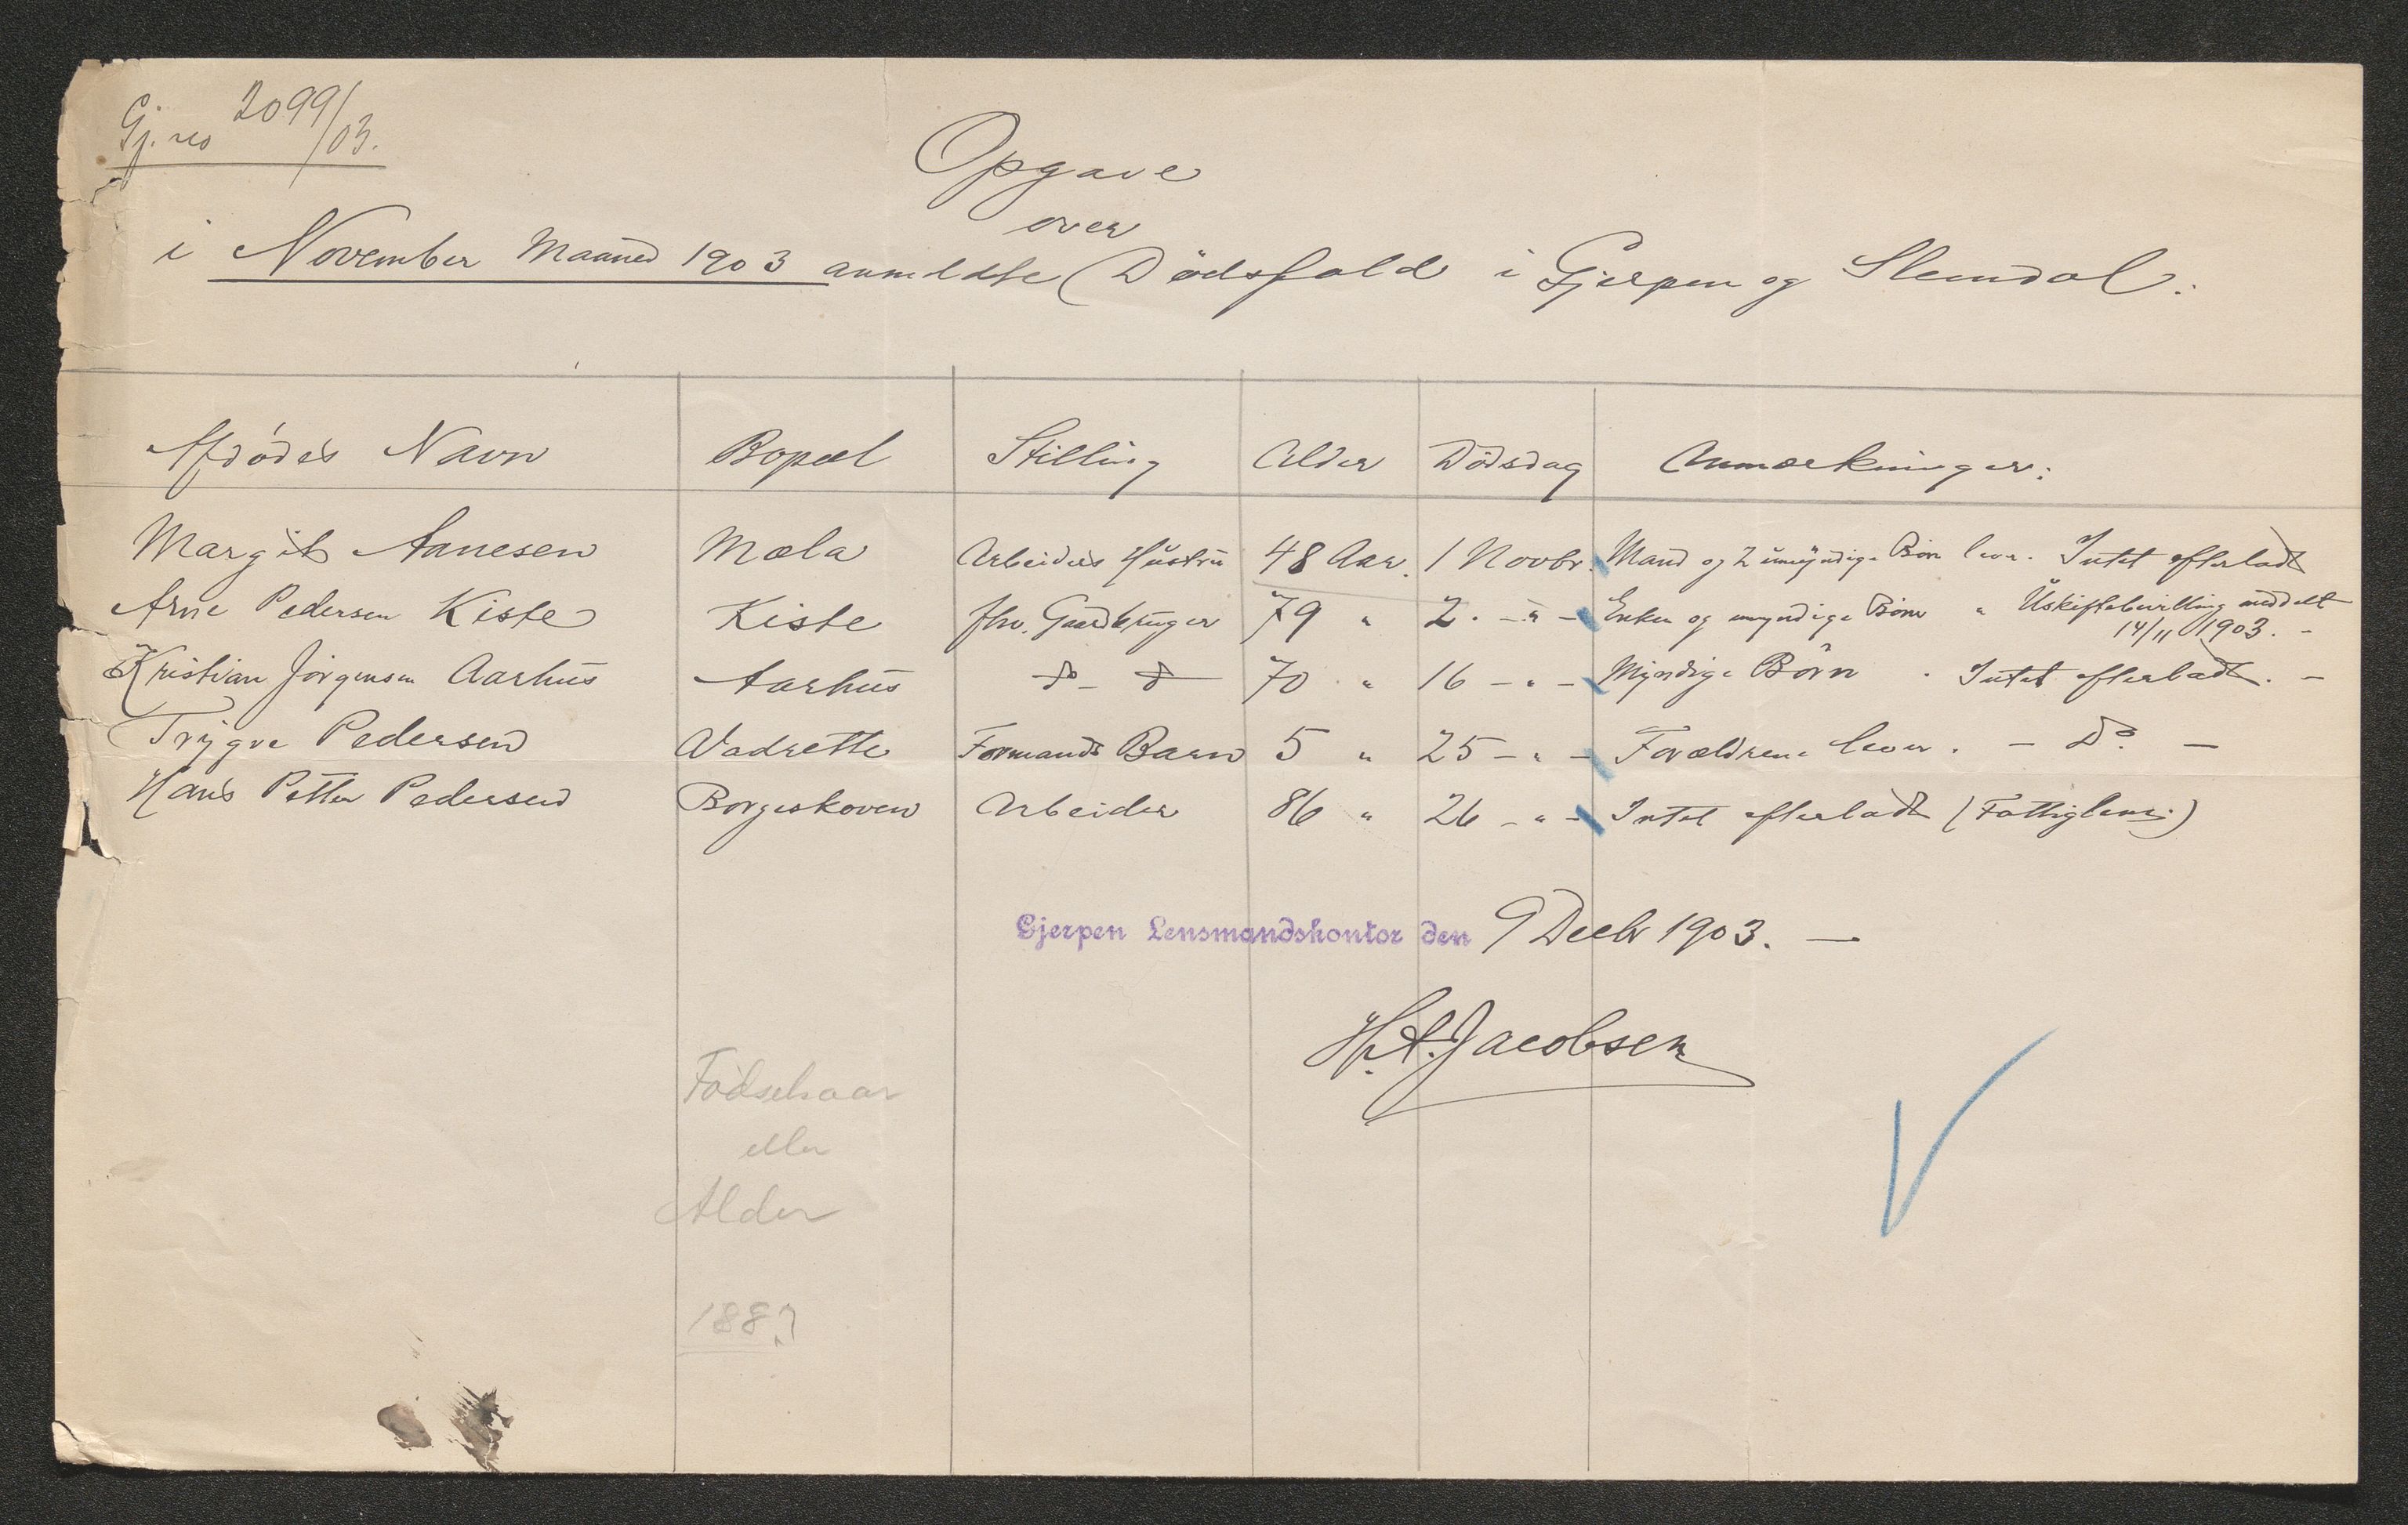 Gj. no 2099/03.
Opgave
over
i November Maaned 1903 anmeldte Dødsfald i Gjerpen og Slemdal.
Afdødes Navn Bopæl Stilling Alder Dødsdag Anmærkninger:
Margit Aanesen Mæla Arbeiders Hustru 48 Aar. 1 Novbr. Mand og 2 umyndige Børn lever. Intet efterladt
Arne Pedersen Kiste Kiste fhv. Gaardbruger 79 " 2. - " - Enke og myndige Børn " Uskiftebevilling meddelt
14/11 1903. -
Kristian Jørgensen Aarhus Aarhus do - do 70 " 16 - " - Myndige Børn " Intet efterladt. -
Trygve Pedersen Vadrette Formands Barn 5 " 25 - " - Forældrene lever. - Do. -
Hans Petter Pedersen Borgeskoven Arbeider 86 " 26 - " - Intet efterladt (Fattiglem)
Gjerpen Lensmandskontor den 9 Decbr 1903. -
H. A. Jacobsen
Fødselsaar
eller
Alder
188?